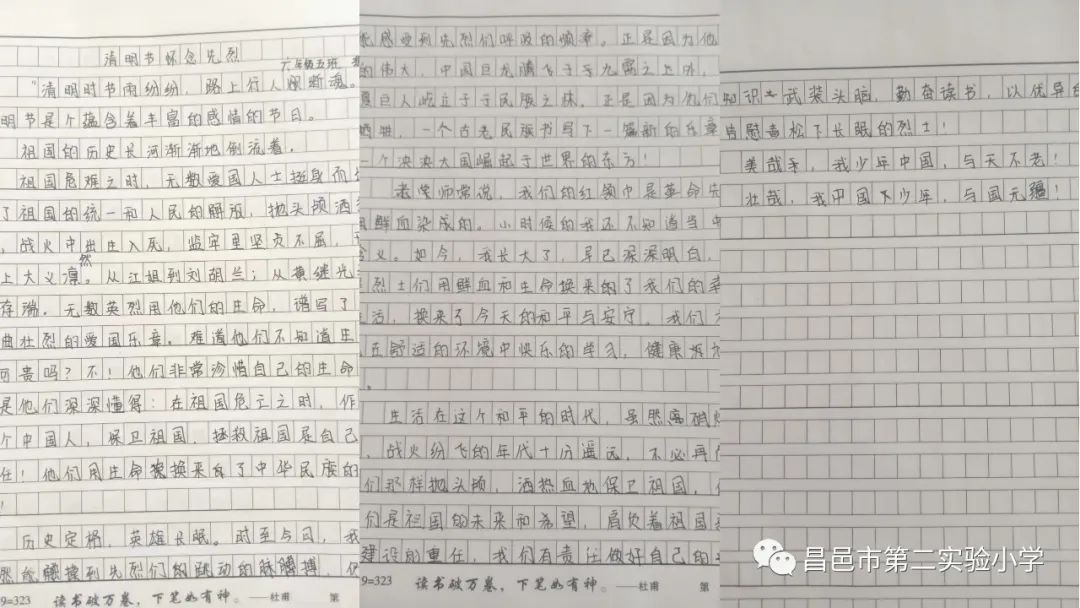 清明节怀念先烈
六年级五班
“清明时节雨纷纷，路上行人欲断魂。
明节是个蕴含着丰富的感情的节日。
祖国的历史长河渐渐地倒流着，
祖国危难之时，无数爱国人士挺身而
了祖国的统一和人民的解放，抛头颅洒
，战火中出生入死，监牢里坚贞不屈，
上大义凛然。从江姐到刘胡兰；从黄继光
存瑞。无数英烈用他们的生命，谱写了
曲壮烈的爱国乐章。难道他们不知道生
可贵吗？不！他们非常珍惜自己的生命
是他们深深懂得：在祖国危亡之时，作
个中国人，保卫祖国，拯救祖国是自己
任！他们用生命换来了中华民族的
！
历史定格，英雄长眠。时至今日，我
然能触摸到先烈们的跳动的脉搏，
9=323 读书破万卷，下笔如有神。——杜甫 第
能感受到先烈们呼吸的频率。正是因为他
的伟大，中国巨龙腾飞于于九霄之上外，
巨人屹立于于民族之林，正是因为他们
牺牲，一个古老民族书写下一篇新的乐章
一个泱泱大国崛起于世界的东方！
老师常说，我们的红领巾是革命先
用鲜血染成的。小时候的我还不知道当中
含义。如今，我长大了，早已深深明白，
烈士们用鲜血和生命换来的了我们的幸
生活，换来了今天的和平与安宁。我们
在舒适的环境中快乐的学习，健康
。
生活在这个和平的时代，虽然离硝烟
，战火纷飞的年代十分遥远，不必再
们那样抛头颅，洒热血地保卫祖国，
们是祖国的未来和希望，肩负着祖国
建设的重任，我们有责任做好自己的
9=323 读书破万卷，下笔如有神。——杜甫 第
知识来武装头脑，勤奋读书，以优异的
慰松下长眠的烈士！
美哉乎，我少年中国，与天不老！
壮哉，我中国少年，与国无疆！
昌邑市第二实验小学